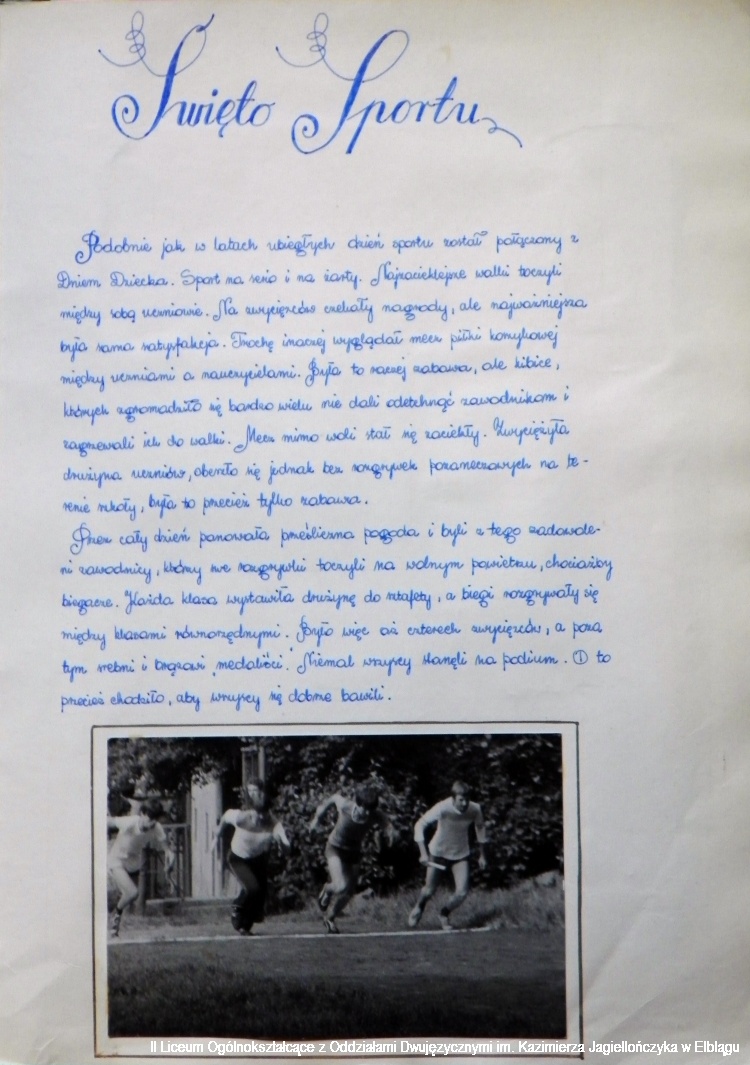 Święto Sportu
Podobnie jak w latach ubiegłych dzień sportu został połączony z
Dniem Dziecka. Sport na serio i na żarty. Najzacieklejsze walki toczyli
między sobą uczniowie. Na zwycięzców czekały nagrody, ale najważniejsza
była sama satysfakcja. Trochę inaczej wyglądał mecz piłki koszykowej
między uczniami a nauczycielami. Była to raczej zabawa, ale kibice,
których zgromadziło się bardzo wielu nie dali odetchnąć zawodnikom i
zagrzewali ich do walki. Mecz mimo woli stał się zaciekły. Zwyciężyła
drużyna uczniów, obeszło się jednak bez rozgrywek pozameczowych na te-
renie szkoły, była to przecież tylko zabawa.
Przez cały dzień panowała prześliczna pogoda i byli z tego zadowole-
ni zawodnicy, którzy swe rozgrywki toczyli na wolnym powietrzu, chociażby
biegacze. Każda klasa wystawiła drużynę do sztafety, a biegi rozgrywały się
między klasami równorzędnymi. Było więc aż czterech zwycięzców, a poza
tym srebrni i brązowi "medaliści." Niemal wszyscy stanęli na podium. O to
przecież chodziło, aby wszyscy się dobrze bawili.
II Liceum Ogólnokształcące z Oddziałami Dwujęzycznymi im. Kazimierza Jagiellończyka w Elblągu